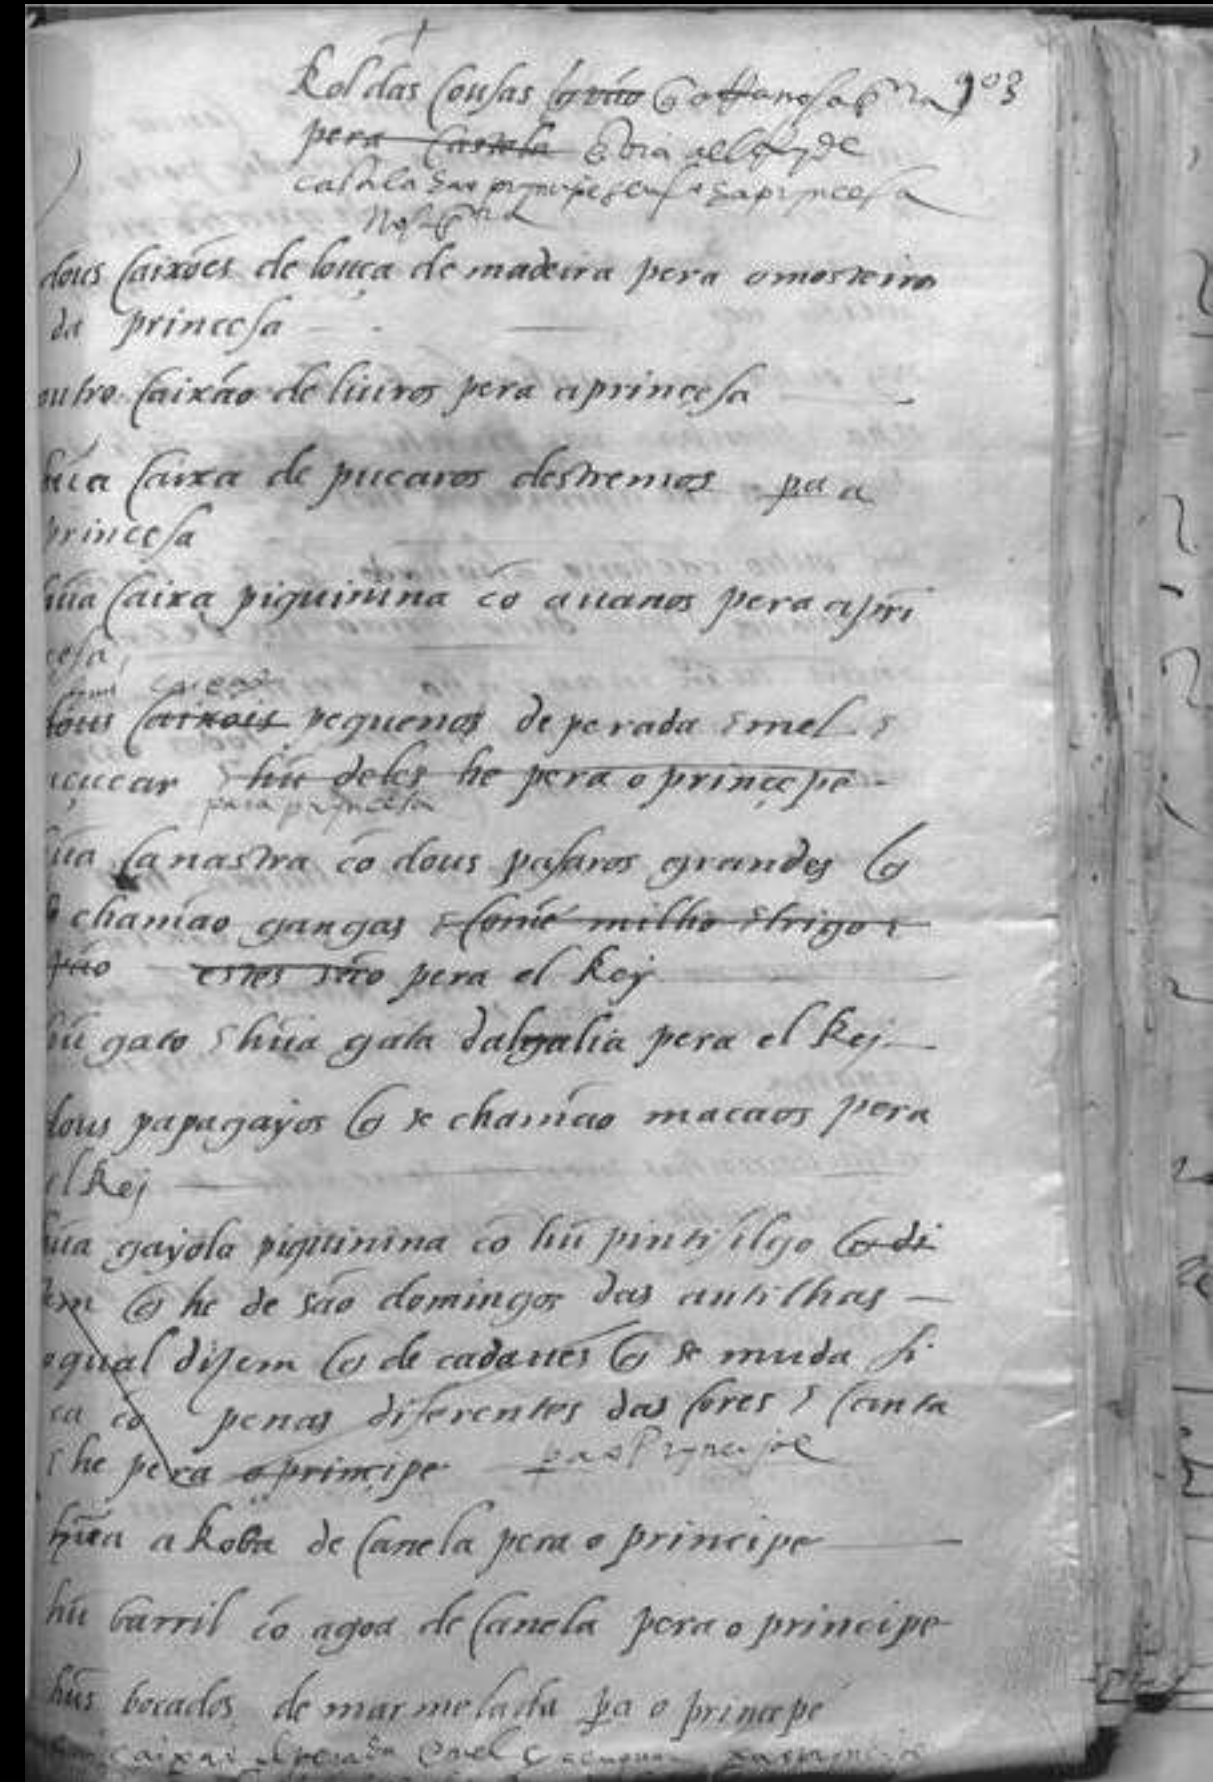 Rol das cousas q vão q 903
pera Castela
a princesa
nosa
dous caixões de louça de madeira pera o mosteiro
da princesa
outro caixão de liuros pera a princesa
hũa caixa de pucaros destremos pa a
princesa
hũa caixa piquinina cõ auanos pera a prĩ
cesa
dous caixois pequenos de perada & mel &
açucar & hũ deles he pera o principe
para princesa
hũa canastra cõ dous pasaros grandes q
chamão gangas & comẽ milho & trigo &
pão estes são pera el Rej
hũ gato & hũa gata dalgalia pera el Rej
dous papagayos q se chamão macaos pera
el Rej
hũa gayola piquinina cõ hũ pintisilgo q di
zem q he de são domingos das antilhas
o qual dizem q de cada ues q se muda fi
ca cõ penas diferentes das cores & canta
& he pera o principe
hũa aRoba de canela pera o principe
hũ barril cõ agoa de canela pera o principe
hũs bocados de marmelada pa o principe
caixas de perada mel